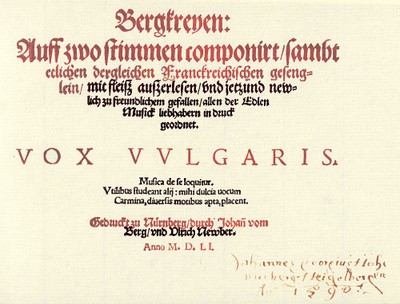 Bergkreyen:
Auff zwo stimmen componirt/sambt
etlichen dergleichen Franckreichischen geseng-
lein/ mit fleiß außerlesen/vnd jetzund new-
lich zu freundlichem gefallen/allen der Edlen
Musick liebhabern in druck
geordnet.
VOX VVLGARIS.
Musica de se loquitur.
Vtilibus studeant alij: mihi dulcia uocum
Carmina, diuersis motibus apta, placent.
Gedruckt zu Nürnberg/durch Johañ vom
Berg/vnd Vlrich Newber.
Anno M. D. L I.
Johannes